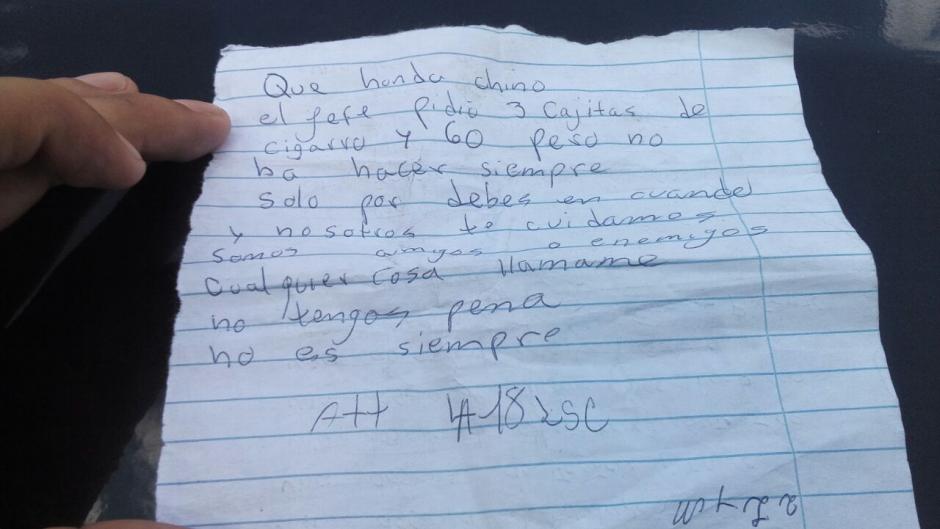 Que honda chino
el fefe pidio 3 Cajitas de
cigarro y 60 peso no
ba hacer siempre
solo por debes en cuando
y nosotros te cuidamos
somos amigos o enemigos
cualquier cosa llamame
no tengas pena
no es siempre
Att LA 18